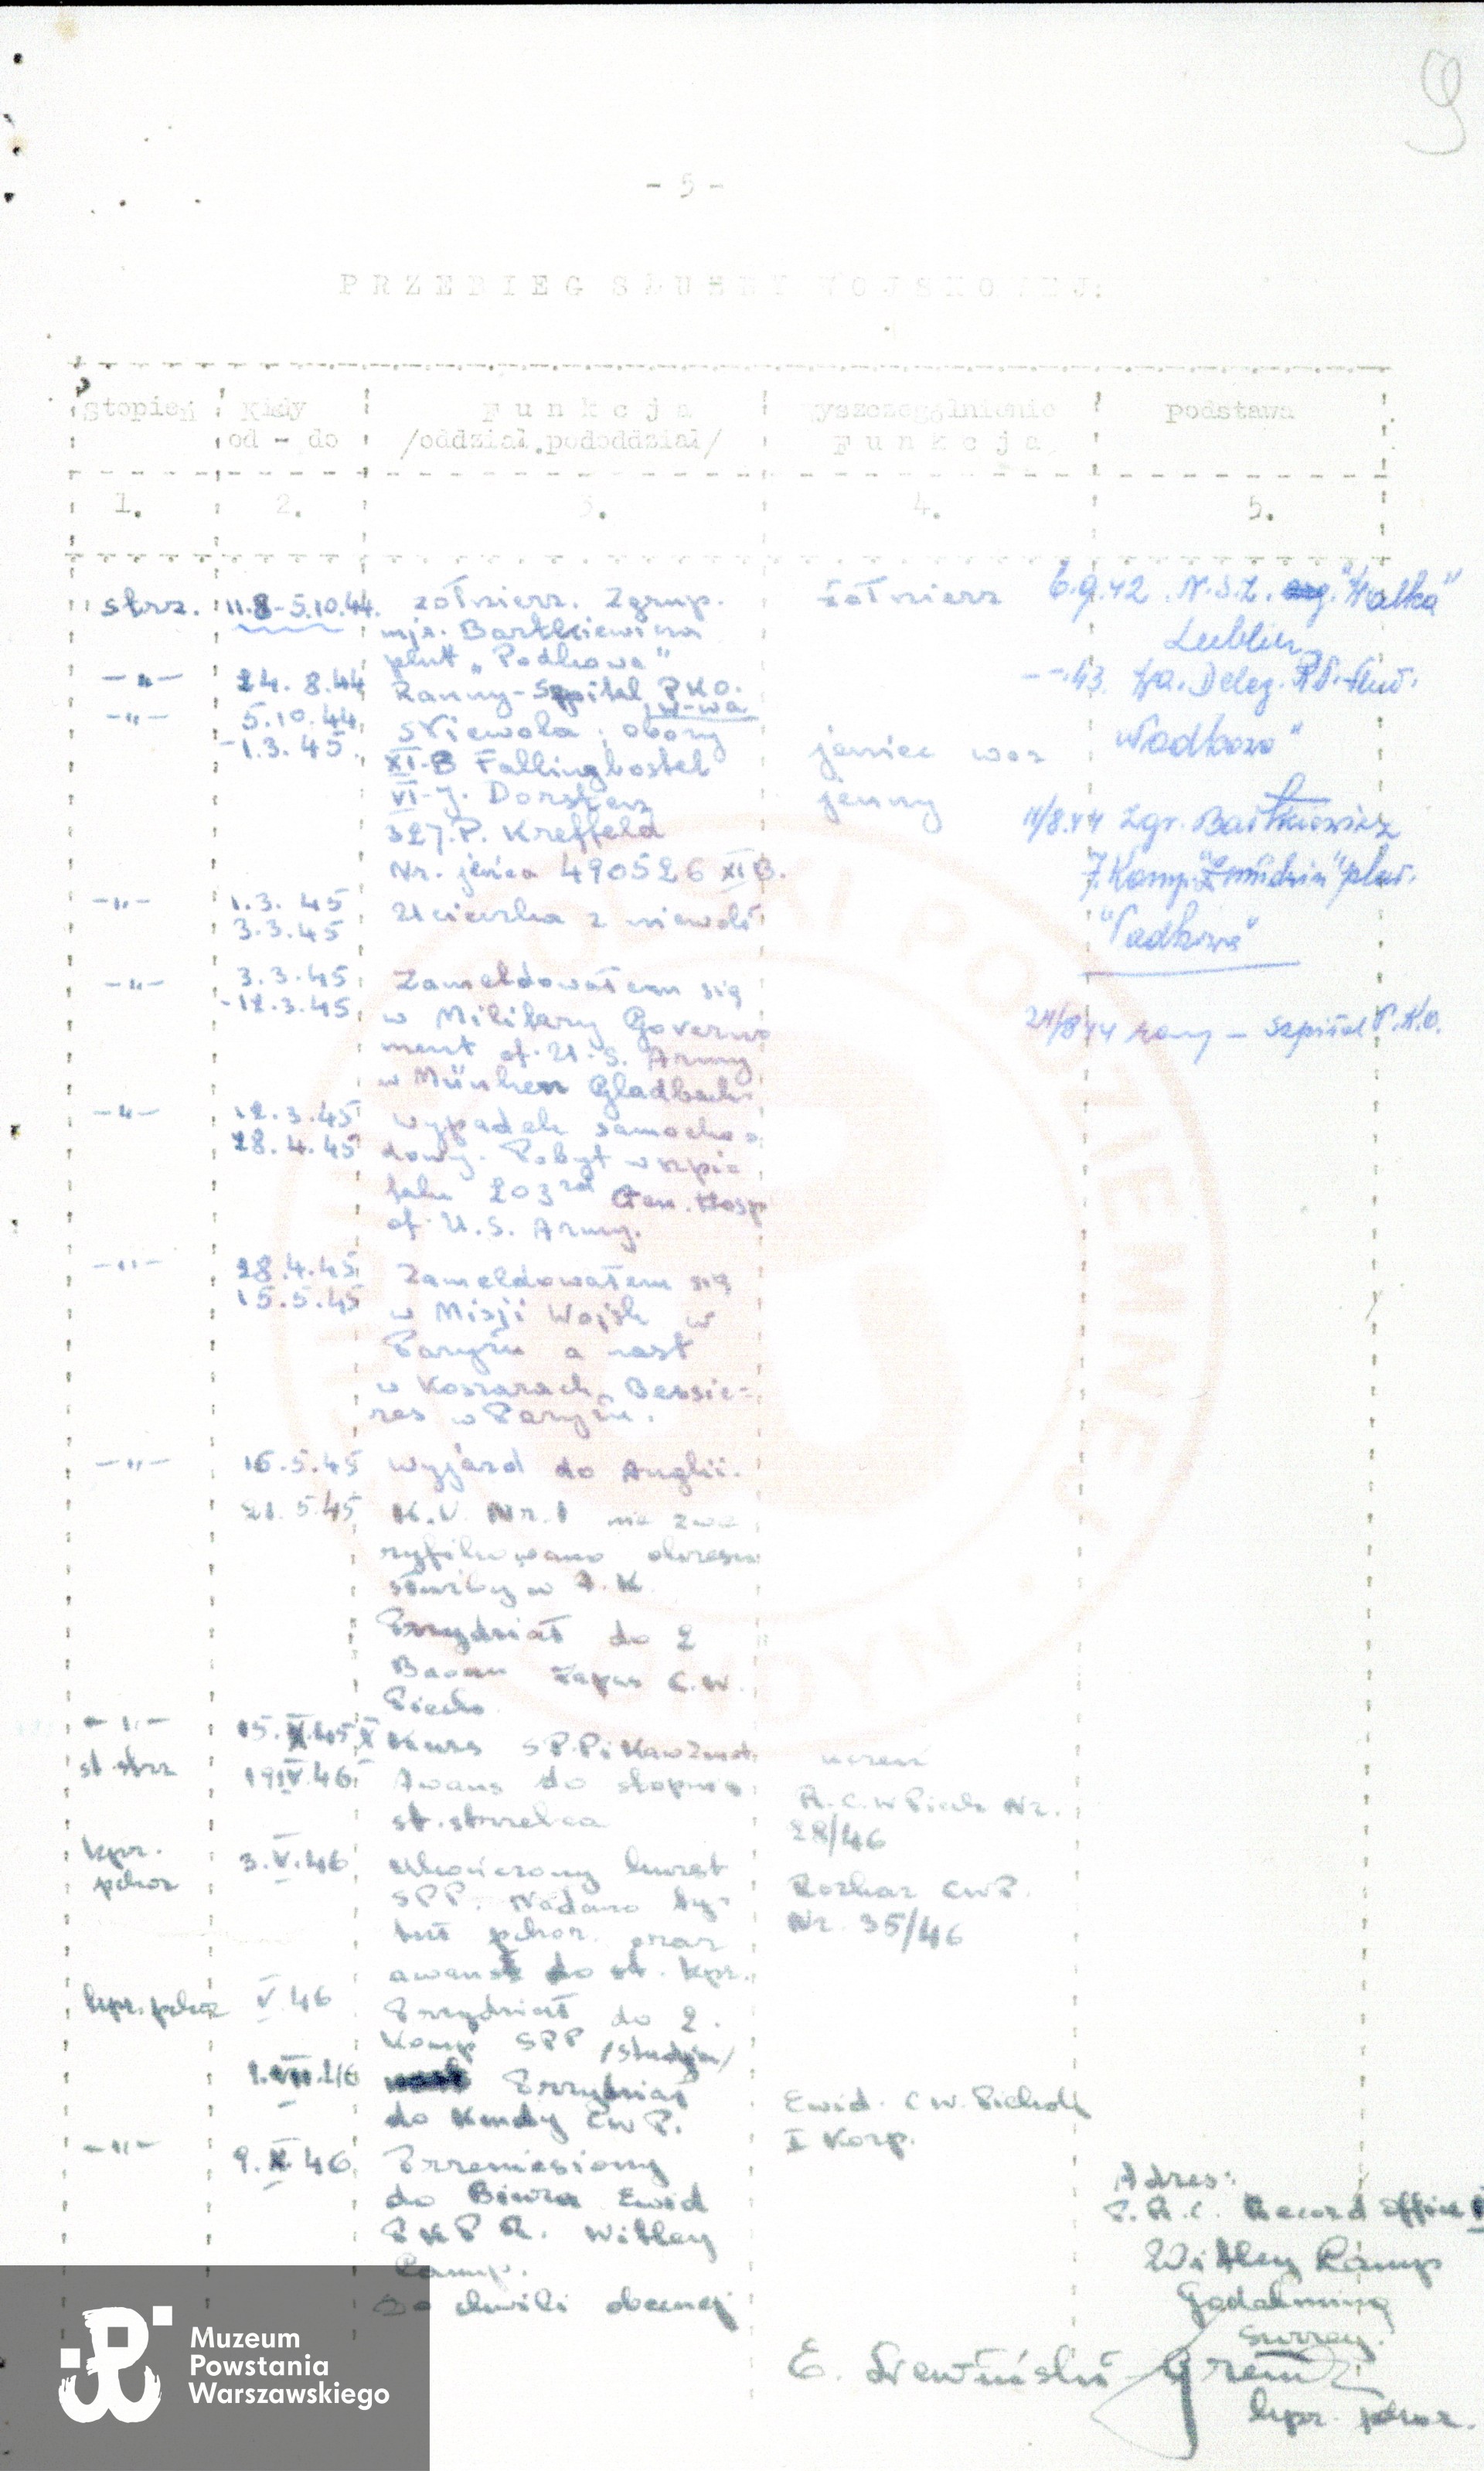 9
- 5 -
PRZEBIEG SŁUŻBY WOJSKOWEJ:
Stopień
Kiedy
od - do
Funkcja
/oddział,pododdział/
Wyszczególnienie
Funkcja
podstawa
1.
2.
3.
4.
5.
strz.
11.8-5.10.44.
żołnierz. Zgrup.
mjr. Bartkiewicza
plut „Podkowa"
żołnierz
6.9.42 N.S.Z. org. "Walka"
Lublin
-"-
24.8.44
Ranny-Szpital PKO.
W-wa
-.43.
-"-
5.10.44
-1.3.45.
Niewola; obozy
XI-B Fallingbostel
VI-J. Dorsten
327.P. Kreffeld
Nr. jeńca 490526 XI B.
jeniec wo=
jenny
11/8.44 Zgr. Bartkiewicz
7.Komp. "Żmudzin" plut.
"Podkowa"
-"-
1.3.45
3.3.45
Ucieczka z niewoli
-"-
3.3.45
-12.3.45
Zameldowałem się
w Military Govern
ment of U.S. Army
w München Gladbach.
24/8 44 rany - Szpital P.K.O.
-"-
12.3.45
28.4.45
wypadek samocho=
dowy. Pobyt w szpi=
talu 203rd Gen. Hosp
of U.S. Army.
-"-
28.4.45
15.5.45
Zameldowałem się
w Misji Wojsk w
Paryżu a nast
w Koszarach Bessie=
res w Paryżu.
-"-
16.5.45
wyjazd do Anglii.
21.5.45
K.U. Nr.1 nie zwe
ryfikowano okresu
służby w A.K.
Przydział do 2
Baonu Zapas C.W.
Piech.
-"-
15.X.45
Kurs SP.P i Kaw Zmot.
uczeń
st. strz
19.IV.46
Awans do stopnia
st. strzelca
R.C.W Piech Nr.
28/46
kpr.
pchor
3.V.46
Ukończony kurs
SPP. Nadano ty=
tuł pchor. oraz
awans do st. kpr.
Rozkaz CWP.
Nr. 35/46
kpr. pchor
V.46
Przydział do 2.
Komp SPP /studyja/
1.VII.46
Przydział
do Kmdy CWP.
Ewid. C W. Piechoty
I Korp.
-"-
9.X.46
Przeniesiony
do Biura Ewid
PKPR. Witley
Camp.
Do chwili obecnej
Adres:
P.R.C. Record Office
Witley Camp
Godalming
Surrey.
E.
kpr. pchor.
Muzeum
Powstania
Warszawskiego